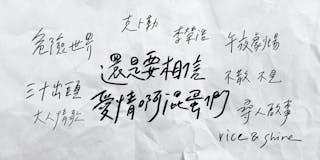 克卜勒
李榮浩
危險世界
午夜劇場
還是要相信
愛情啊混蛋們
三十出頭
大人情歌
不散 不見
尋人啟事
rice & shine